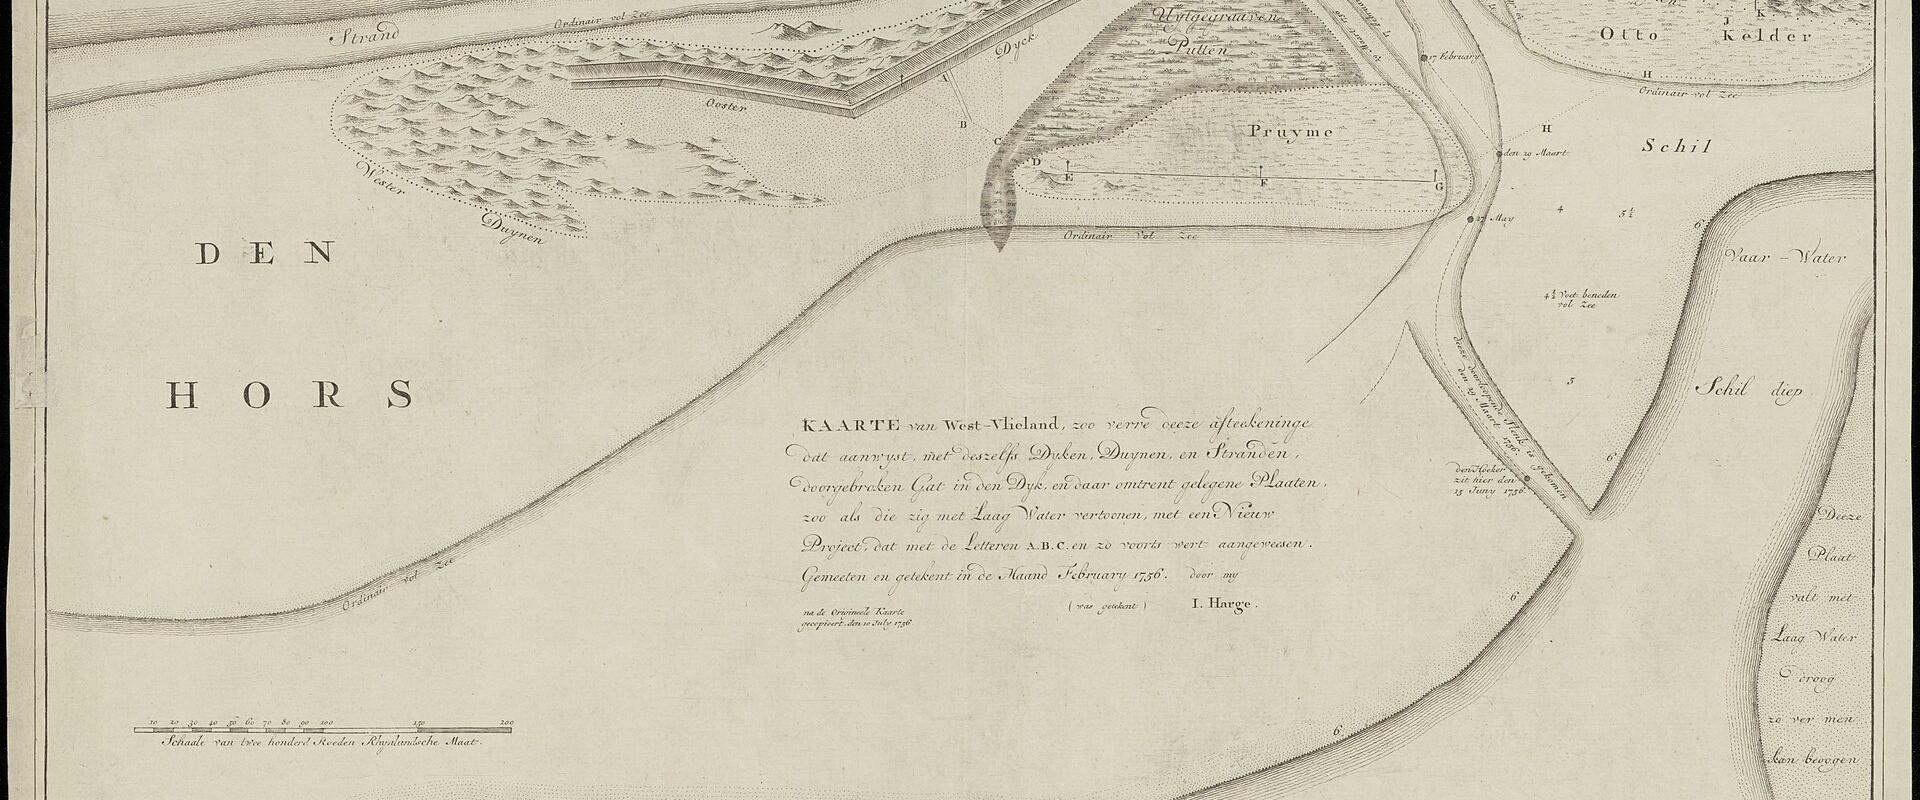 Ordinair vol Zee
Strand
Uytgegraaven
Putten
Dyck
Ooster
17 February
Otto Kelder
J
K
H
Ordinair vol Zee
A
B
C
D
E
F
G
H
Pruyme
den 29 Maart
Schil
Wester
Duynen
17 May
4
5½
6
Ordinair vol Zee
DEN
HORS
Vaar-Water
4½ Voet beneden
vol Zee
3
Schil diep
deeze doorloopende Slenk is gekomen
den 29 Maart 1756.
6
den Hoeker
zit hier den
15 Juny 1756.
KAARTE van West-Vlieland, zoo verre deeze afteekeninge
dat aanwyst, met deszelfs Dyken, Duynen, en Stranden,
doorgebroken Gat in den Dyk, en daar omtrent gelegene Plaaten,
zoo als die zig met Laag Water vertoonen, met een Nieuw
Project, dat met de Letteren A.B.C. en zo voorts wert aangeweesen.
Gemeeten en getekent in de Maand February 1756. door my
(was getekent) I. Harge.
na de Origineele Kaarte
gecopieert, den 10 July 1756.
Ordinair vol Zee
6
6
Deeze
Plaat
valt met
Laag Water
droog
zo ver men
kan beoogen
10 20 30 40 50 60 70 80 90 100 150 200
Schaale van twee honderd Roeden Rhynlandsche Maat.